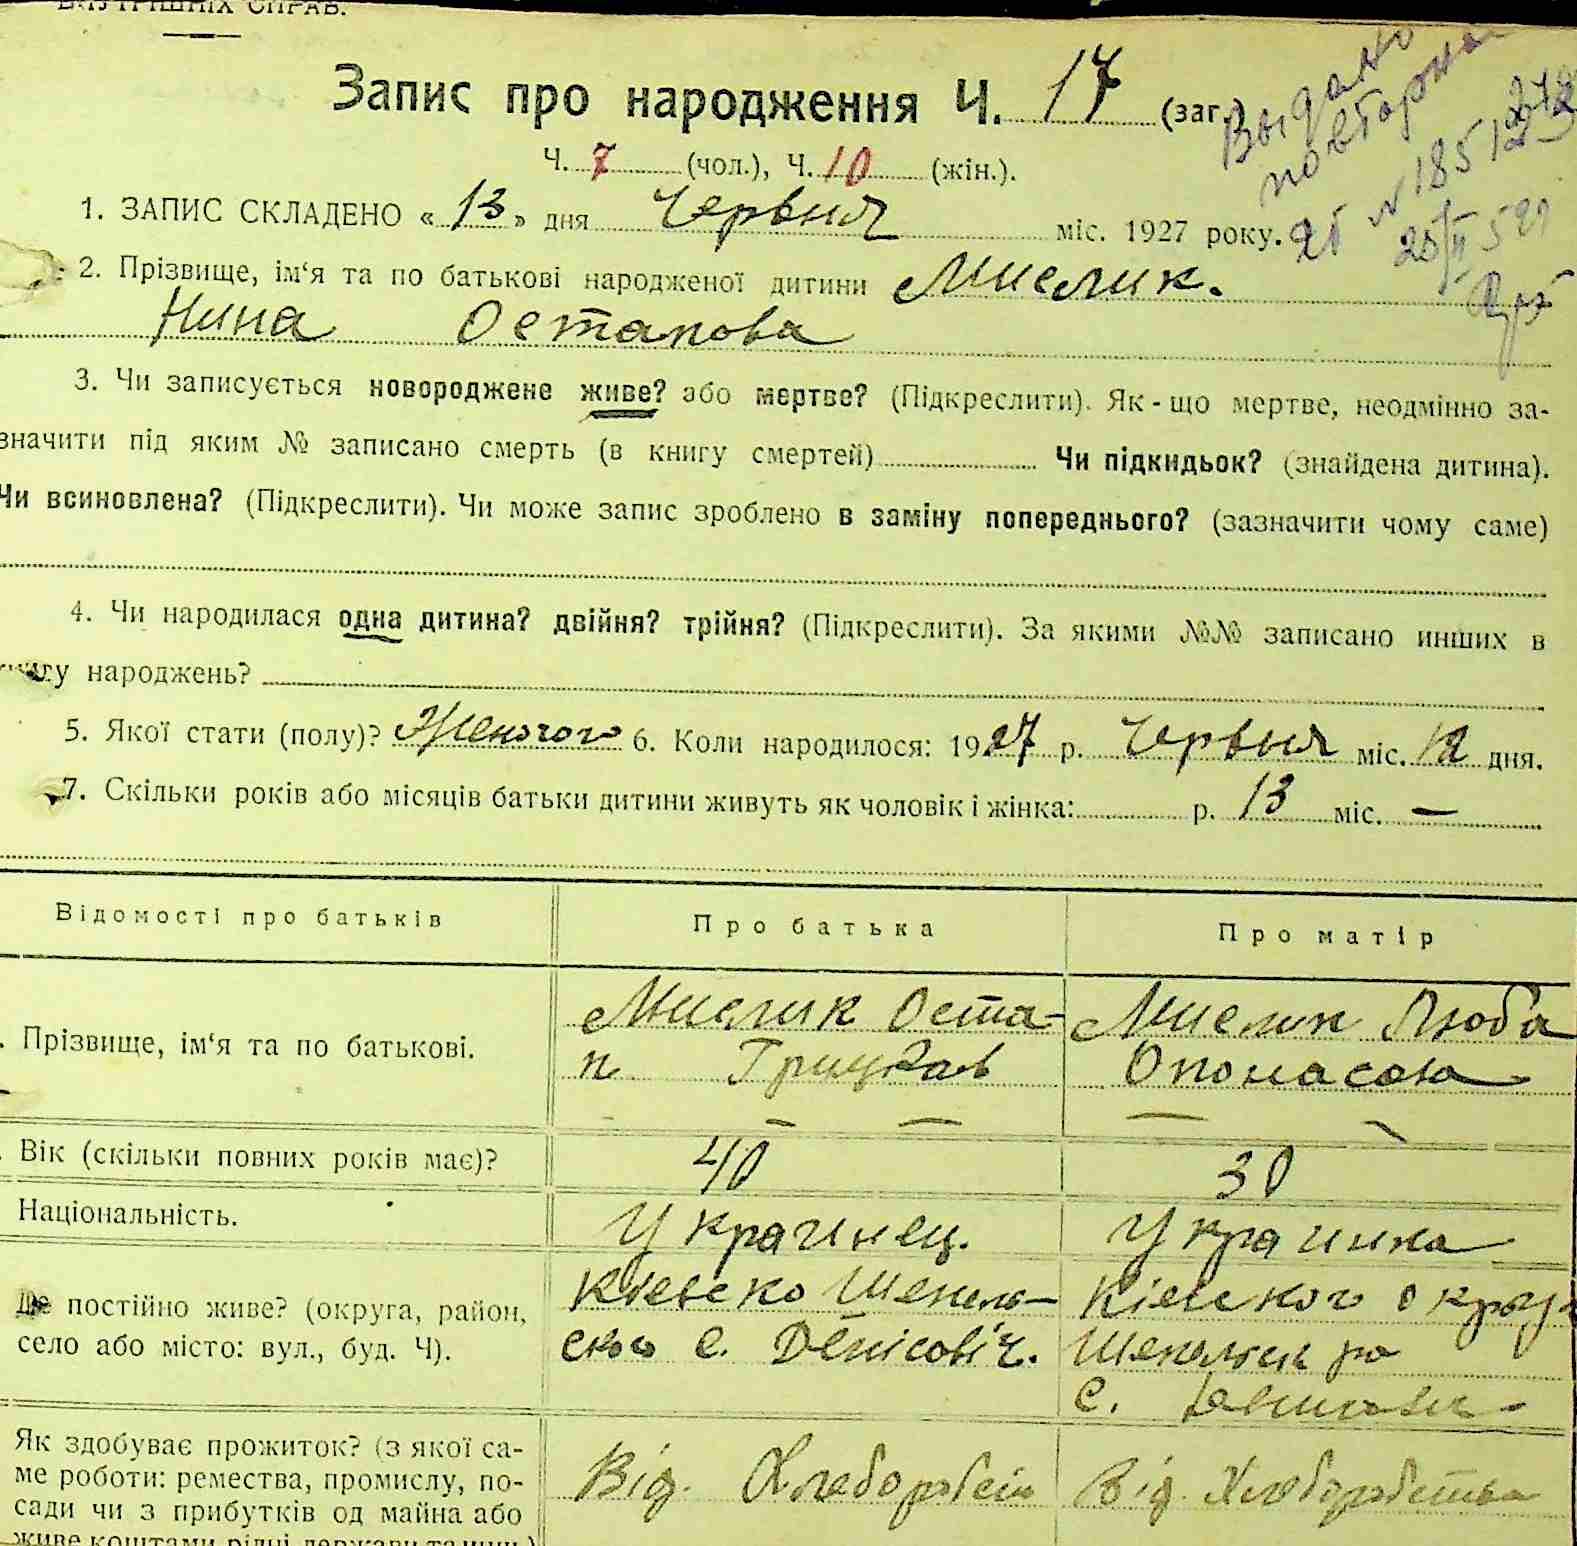 ВНУТРІШНІХ СПРАВ.
Запис про народження Ч. 17 (заг.)
Выдано
повторное
№ 185123
Ч. 7 (чол.), Ч. 10 (жін.).
1. ЗАПИС СКЛАДЕНО « 13 » дня Червня міс. 1927 року.
2. Прізвище, ім‘я та по батькові народженої дитини Мислик.
Нина Остапова
3. Чи записується новороджене живе? або мертве? (Підкреслити). Як-що мертве, неодмінно за-
значити під яким № записано смерть (в книгу смертей) Чи підкидьок? (знайдена дитина).
Чи всиновлена? (Підкреслити). Чи може запис зроблено в заміну попереднього? (зазначити чому саме)
4. Чи народилася одна дитина? двійня? трійня? (Підкреслити). За якими №№ записано инших в
книгу народжень?
5. Якої стати (полу)? Женочого 6. Коли народилося: 1927 р. Червня міс. 12 дня.
7. Скільки років або місяців батьки дитини живуть як чоловік і жінка: р. 13 міс. —
Відомості про батьків Про батька Про матір
Прізвище, ім‘я та по батькові. Мислик Оста- Мислик Люба
п Грицков Опонасова
Вік (скільки повних років має)? 40 30
Національність. Украинец. Украинка
Де постійно живе? (округа, район, Кіевско Шепель- Кіевского округ
село або місто: вул., буд. Ч). ского с. Денісовіч. Шепельск ра
с.
Як здобуває прожиток? (з якої са-
ме роботи: ремества, промислу, по- Від. Хлеборобств Від Хлеборобства
сади чи з прибутків од майна або
живе коштами рідні, держави та инш.)